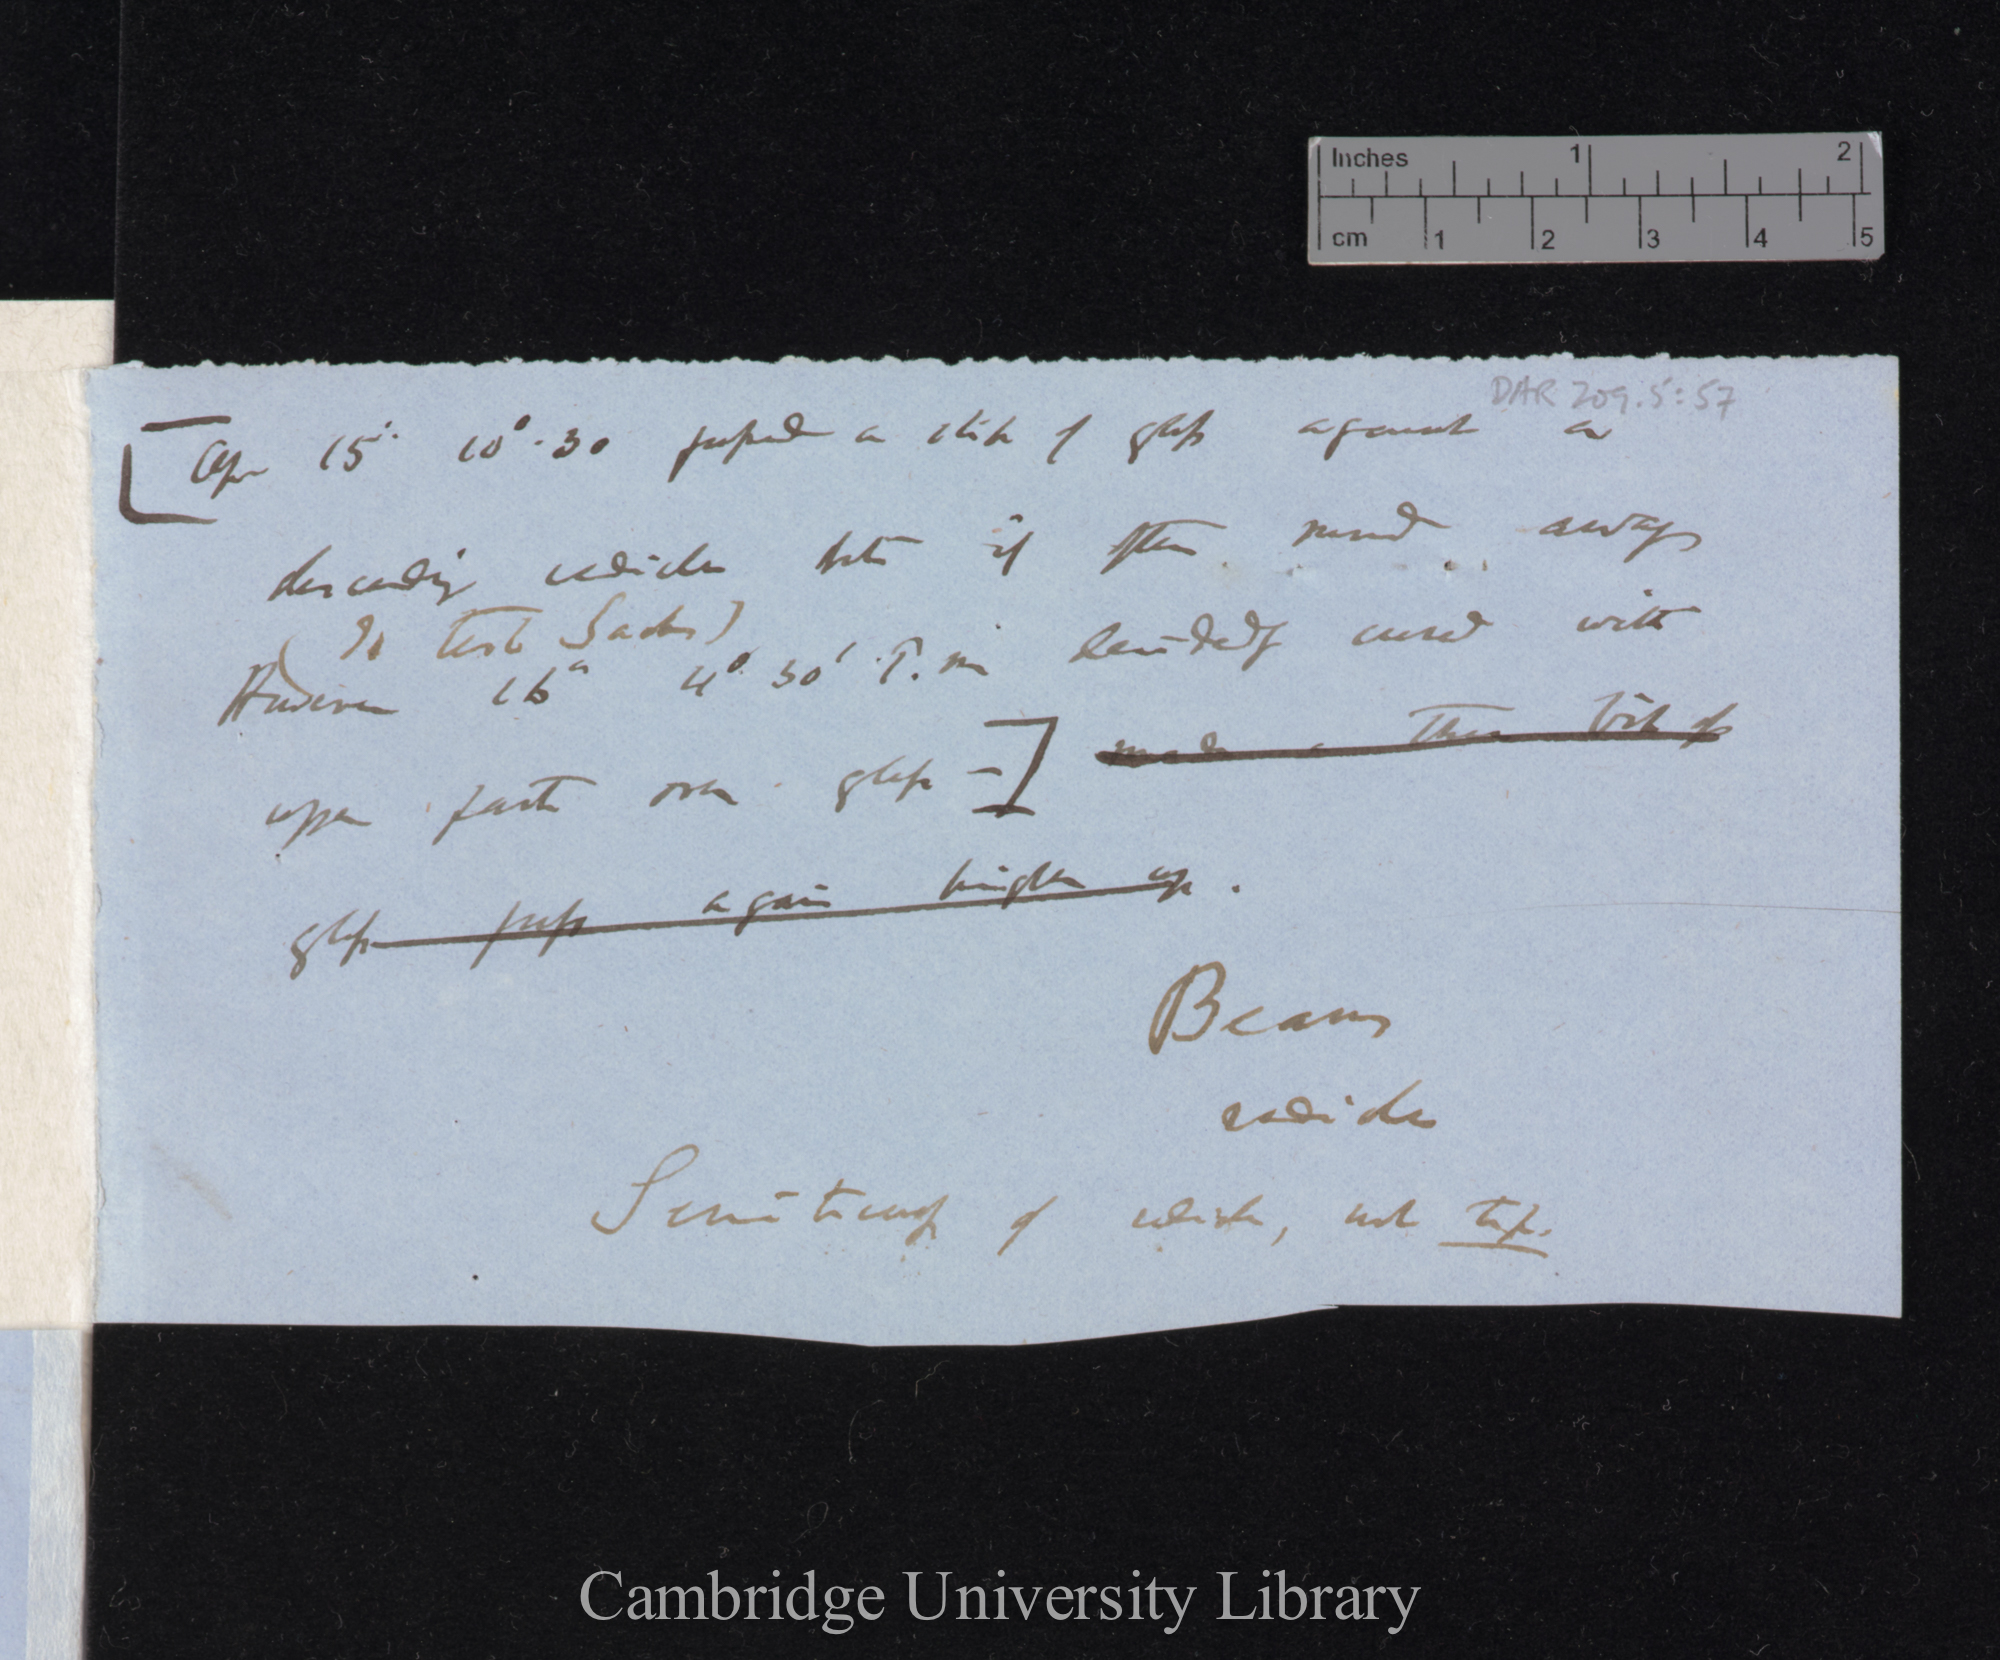 Inches 1 2
cm 1 2 3 4 5
DAR 209.5:57
[Apr 15th. 10°.30 pressed a stick of glass against a
descending radicle to see if then moved away
(To test Sachs)
However 16th 4°.30' P.m decidedly curved with
upper part over glass —] made a then bit of
glass press again higher up.
Beans
radicles
Sensitiveness of radicle, not tip.
Cambridge University Library